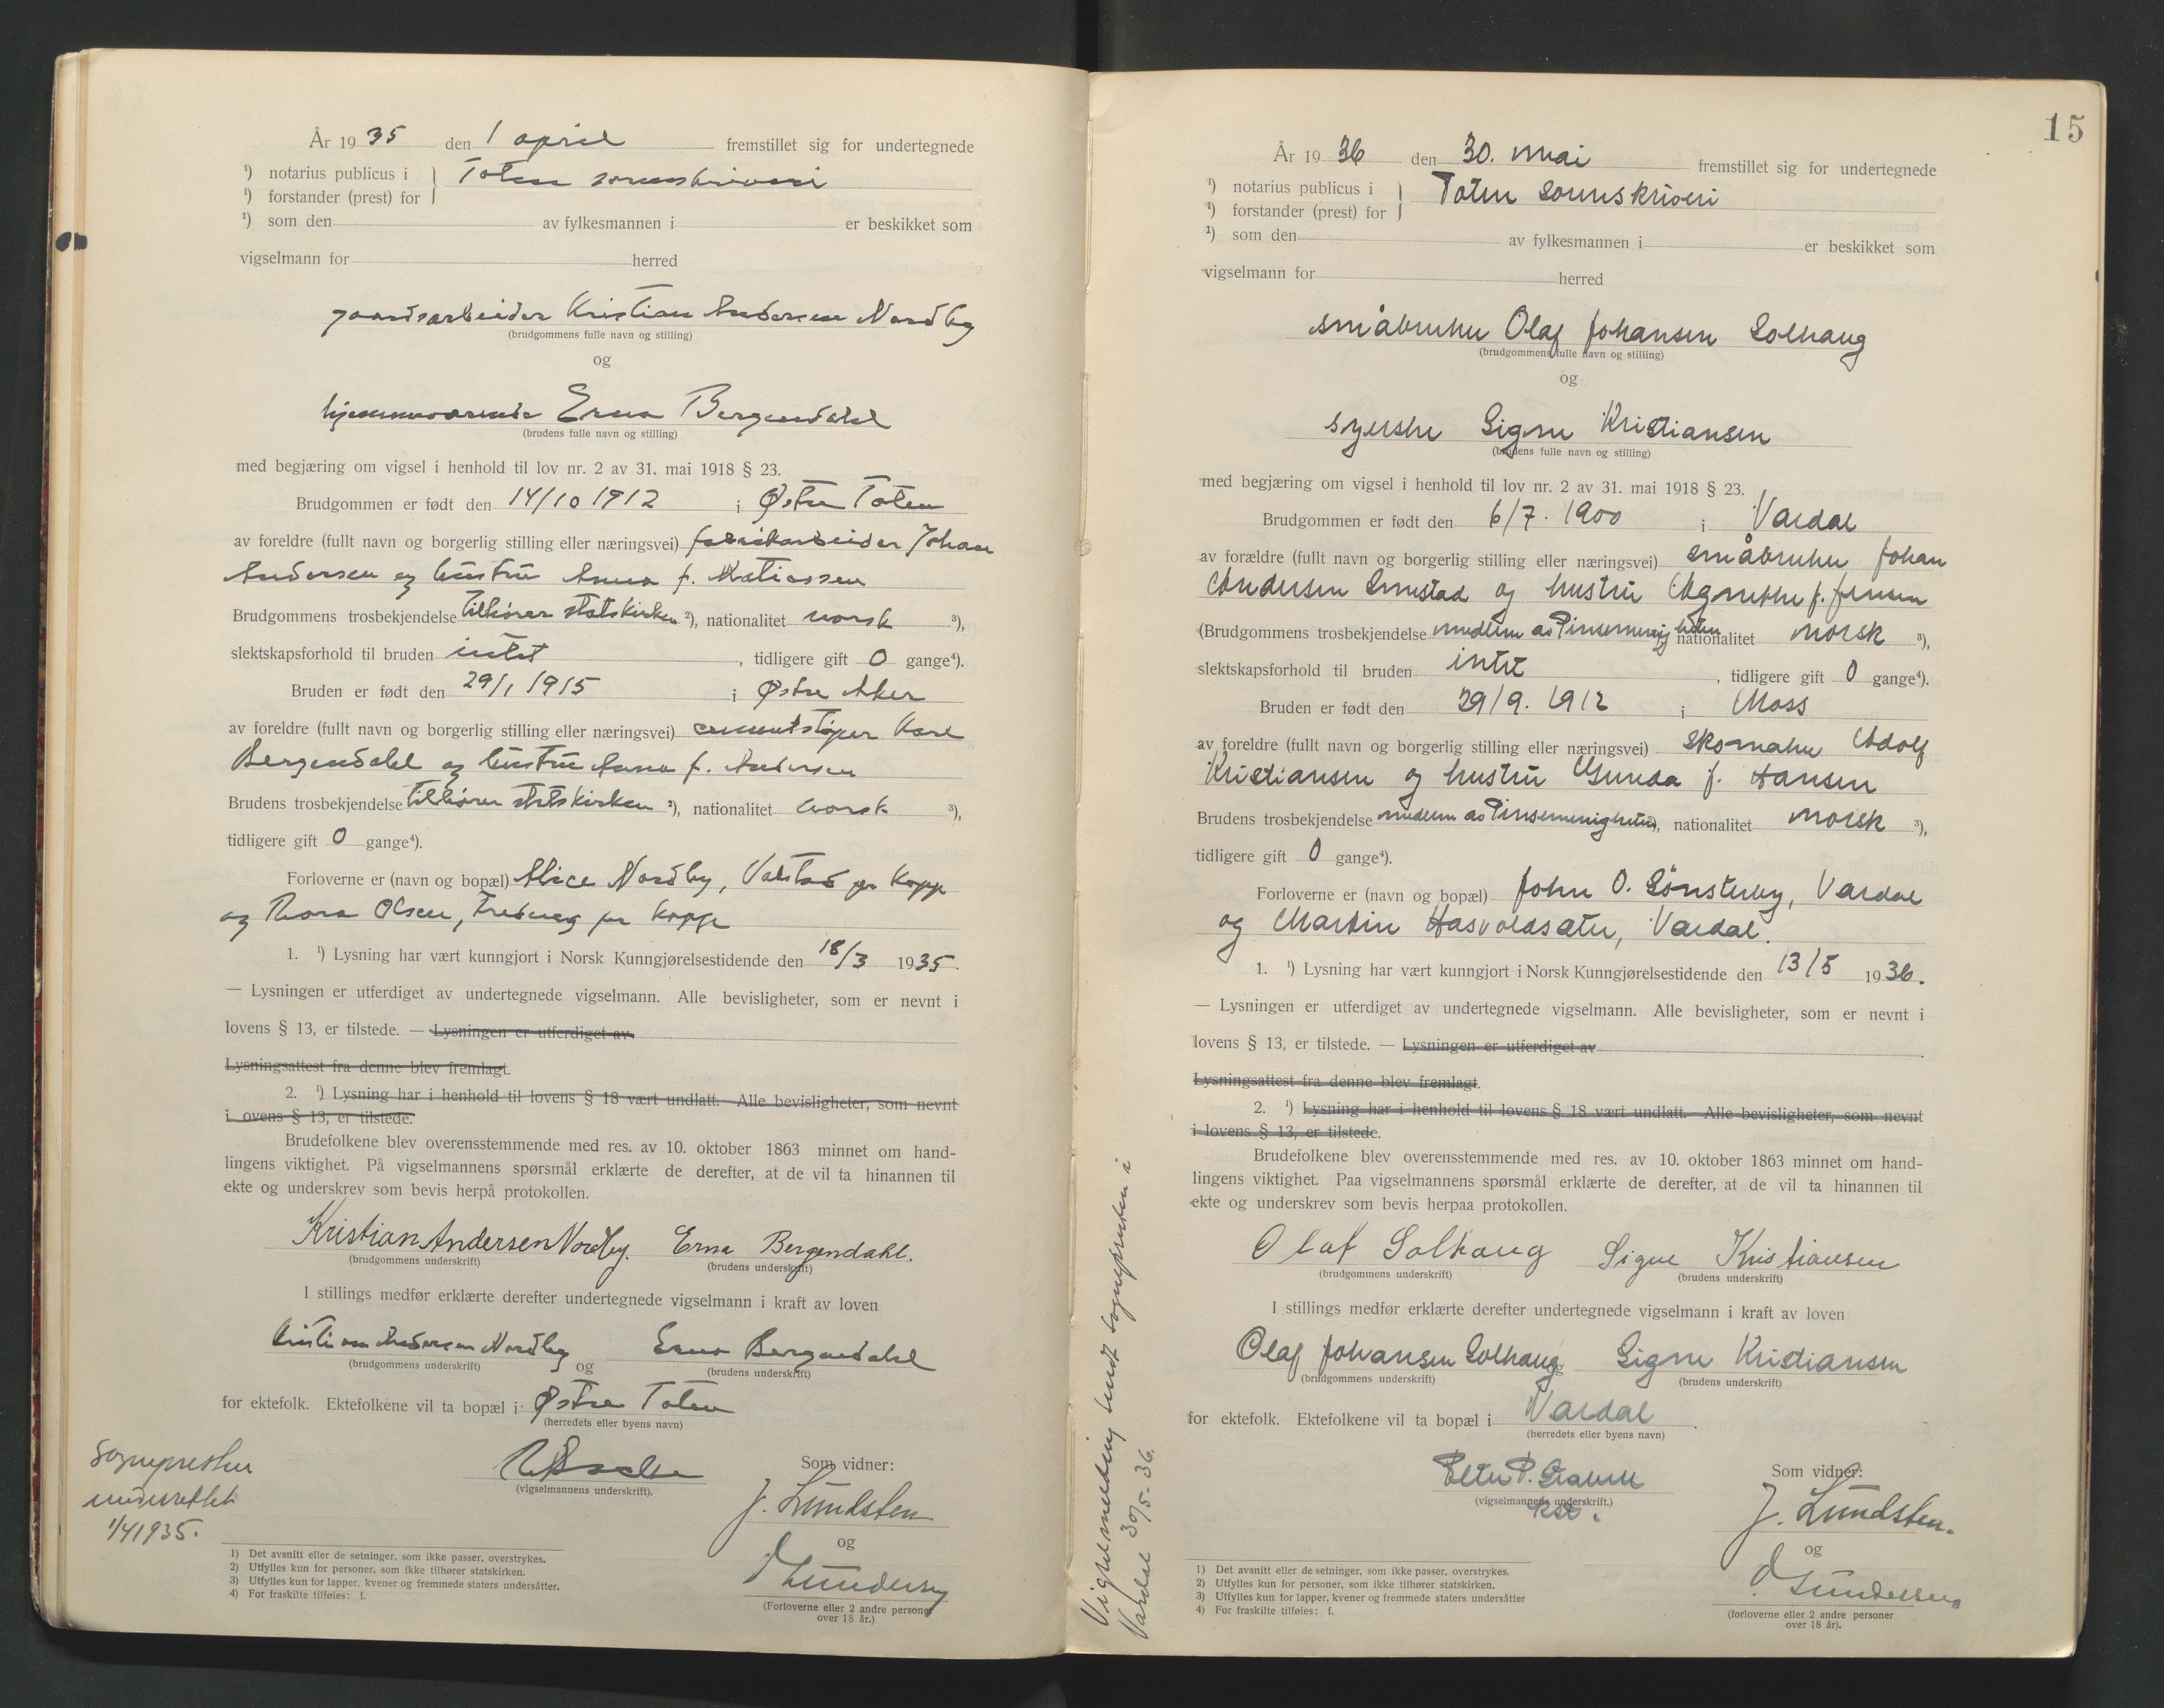 År 1935 den 1 april fremstillet sig for undertegnede
¹) notarius publicus i } Toten sorenskriveri
¹) forstander (prest) for
¹) som den av fylkesmannen i er beskikket som
vigselmann for herred
gaardsarbeider Kristian Andersen Nordby
(brudgommens fulle navn og stilling)
og
hjemmeværende Erna Bergendahl
(brudens fulle navn og stilling)
med begjæring om vigsel i henhold til lov nr. 2 av 31. mai 1918 § 23.
Brudgommen er født den 14/10 1912 i Østre Toten
av foreldre (fullt navn og borgerlig stilling eller næringsvei) fabrikarbeider Johan
Andersen og hustru Anna f. Matiassen
Brudgommens trosbekjendelse tilhører statskirken ²), nationalitet norsk ³),
slektskapsforhold til bruden intet, tidligere gift 0 gange⁴).
Bruden er født den 29/1 1915 i Østre Aker
av foreldre (fullt navn og borgerlig stilling eller næringsvei) cementstøper Karl
Bergendahl og hustru Anna f. Andersen
Brudens trosbekjendelse tilhører statskirken ²), nationalitet norsk ³),
tidligere gift 0 gange⁴).
Forloverne er (navn og bopæl) Alice Nordby, Valstad pr Kapp
og Thora Olsen, pr Kapp
1. ¹) Lysning har vært kunngjort i Norsk Kunngjørelsestidende den 18/3 1935.
— Lysningen er utferdiget av undertegnede vigselmann. Alle bevisligheter, som er nevnt i
lovens § 13, er tilstede. — Lysningen er utferdiget av
Lysningsattest fra denne blev fremlagt.
2. ¹) Lysning har i henhold til lovens § 18 vært undlatt. Alle bevisligheter, som nevnt
i ovens § 13, er tilstede.
Brudefolkene blev overensstemmende med res. av 10. oktober 1863 minnet om hand-
lingens viktighet. På vigselmannens spørsmål erklærte de derefter, at de vil ta hinannen til
ekte og underskrev som bevis herpå protokollen.
Kristian Andersen Nordby. Erna Bergendahl.
(brudgommens underskrift) (brudens underskrift)
I stillings medfør erklærte derefter undertegnede vigselmann i kraft av loven
Kristian Andersen Nordby og Erna Bergendahl
(brudgommens underskrift) (brudens underskrift)
for ektefolk. Ektefolkene vil ta bopæl i Østre Toten
(herredets eller byens navn)
(vigselmannens underskrift).
Sognepresten
underrettet
1/4 1935.
Som vidner:
J. Lundsten
og
Gundersen
(Forloverne eller 2 andre personer
over 18 år.)
1) Det avsnitt eller de setninger, som ikke passer, overstrykes.
2) Utfylles kun for personer, som ikke tilhører statskirken.
3) Utfylles kun for lapper, kvener og fremmede staters undersåtter.
4) For fraskilte tilføies: f.
15
År 1936 den 30. mai fremstillet sig for undertegnede
¹) notarius publicus i } Toten Sorenskriveri
¹) forstander (prest) for
¹) som den av fylkesmannen i er beskikket som
vigselmann for herred
småbruker Olaf Johansen Solhaug
(brudgommens fulle navn og stilling)
og
syerske Signe Kristiansen
(brudens fulle navn og stilling)
med begjæring om vigsel i henhold til lov nr. 2 av 31. mai 1918 § 23.
Brudgommen er født den 6/7. 1900 i Vardal
av forældre (fullt navn og borgerlig stilling eller næringsvei) småbruker Johan
Andersen Smestad og hustru Agnethe f. Jensen
(Brudgommens trosbekjendelse medlem av Pinsemenigheten nationalitet norsk ³),
slektskapsforhold til bruden intet, tidligere gift 0 gange⁴).
Bruden er født den 29/9. 1912 i Moss
av foreldre (fullt navn og borgerlig stilling eller næringsvei) skomaker Adolf
Kristiansen og hustru Gunda f. Hansen
Brudens trosbekjendelse medlem av Pinsemenigheten, nationalitet norsk ³),
tidligere gift 0 gange⁴).
Forloverne er (navn og bopæl) John O. Sønsteby, Vardal
og Martin Hasvoldsæter, Vardal.
1. ¹) Lysning har vært kunngjort i Norsk Kunngjørelsestidende den 13/5 1936.
— Lysningen er utferdiget av undertegnede vigselmann. Alle bevisligheter, som er nevnt i
lovens § 13, er tilstede. — Lysningen er utferdiget av
Lysningsattest fra denne blev fremlagt.
2. ¹) Lysning har i henhold til lovens § 18 vært undlatt. Alle bevisligheter, som nevnt
i lovens § 13, er tilstede.
Brudefolkene blev overensstemmende med res. av 10. oktober 1863 minnet om hand-
lingens viktighet. Paa vigselmannens spørsmål erklærte de derefter, at de vil ta hinannen til
ekte og underskrev som bevis herpaa protokollen.
Olaf Solhaug Signe Kristiansen
(brudgommens underskrift) (brudens underskrift)
I stillings medfør erklærte derefter undertegnede vigselmann i kraft av loven
Olaf Johansen Solhaug og Signe Kristiansen
(brudgommens underskrift) (brudens underskrift)
for ektefolk. Ektefolkene vil ta bopæl i Vardal.
(herredets eller byens navn)
Peter P.
(vigselmannens underskrift.)
kst.
Som vidner:
J. Lundsten.
og
Gundersen
(forloverne eller 2 andre personer
over 18 år).
1) Det avsnitt eller de setninger, som ikke passer, overstrykes.
2) Utfylles kun for personer, som ikke tilhører statskirken.
3) Utfylles kun for lapper, kvener og fremmede staters undersåtter
4) For fraskilte tilføies: f.
Vigselmelding sendt sognepresten i
Vardal 30/5-36.